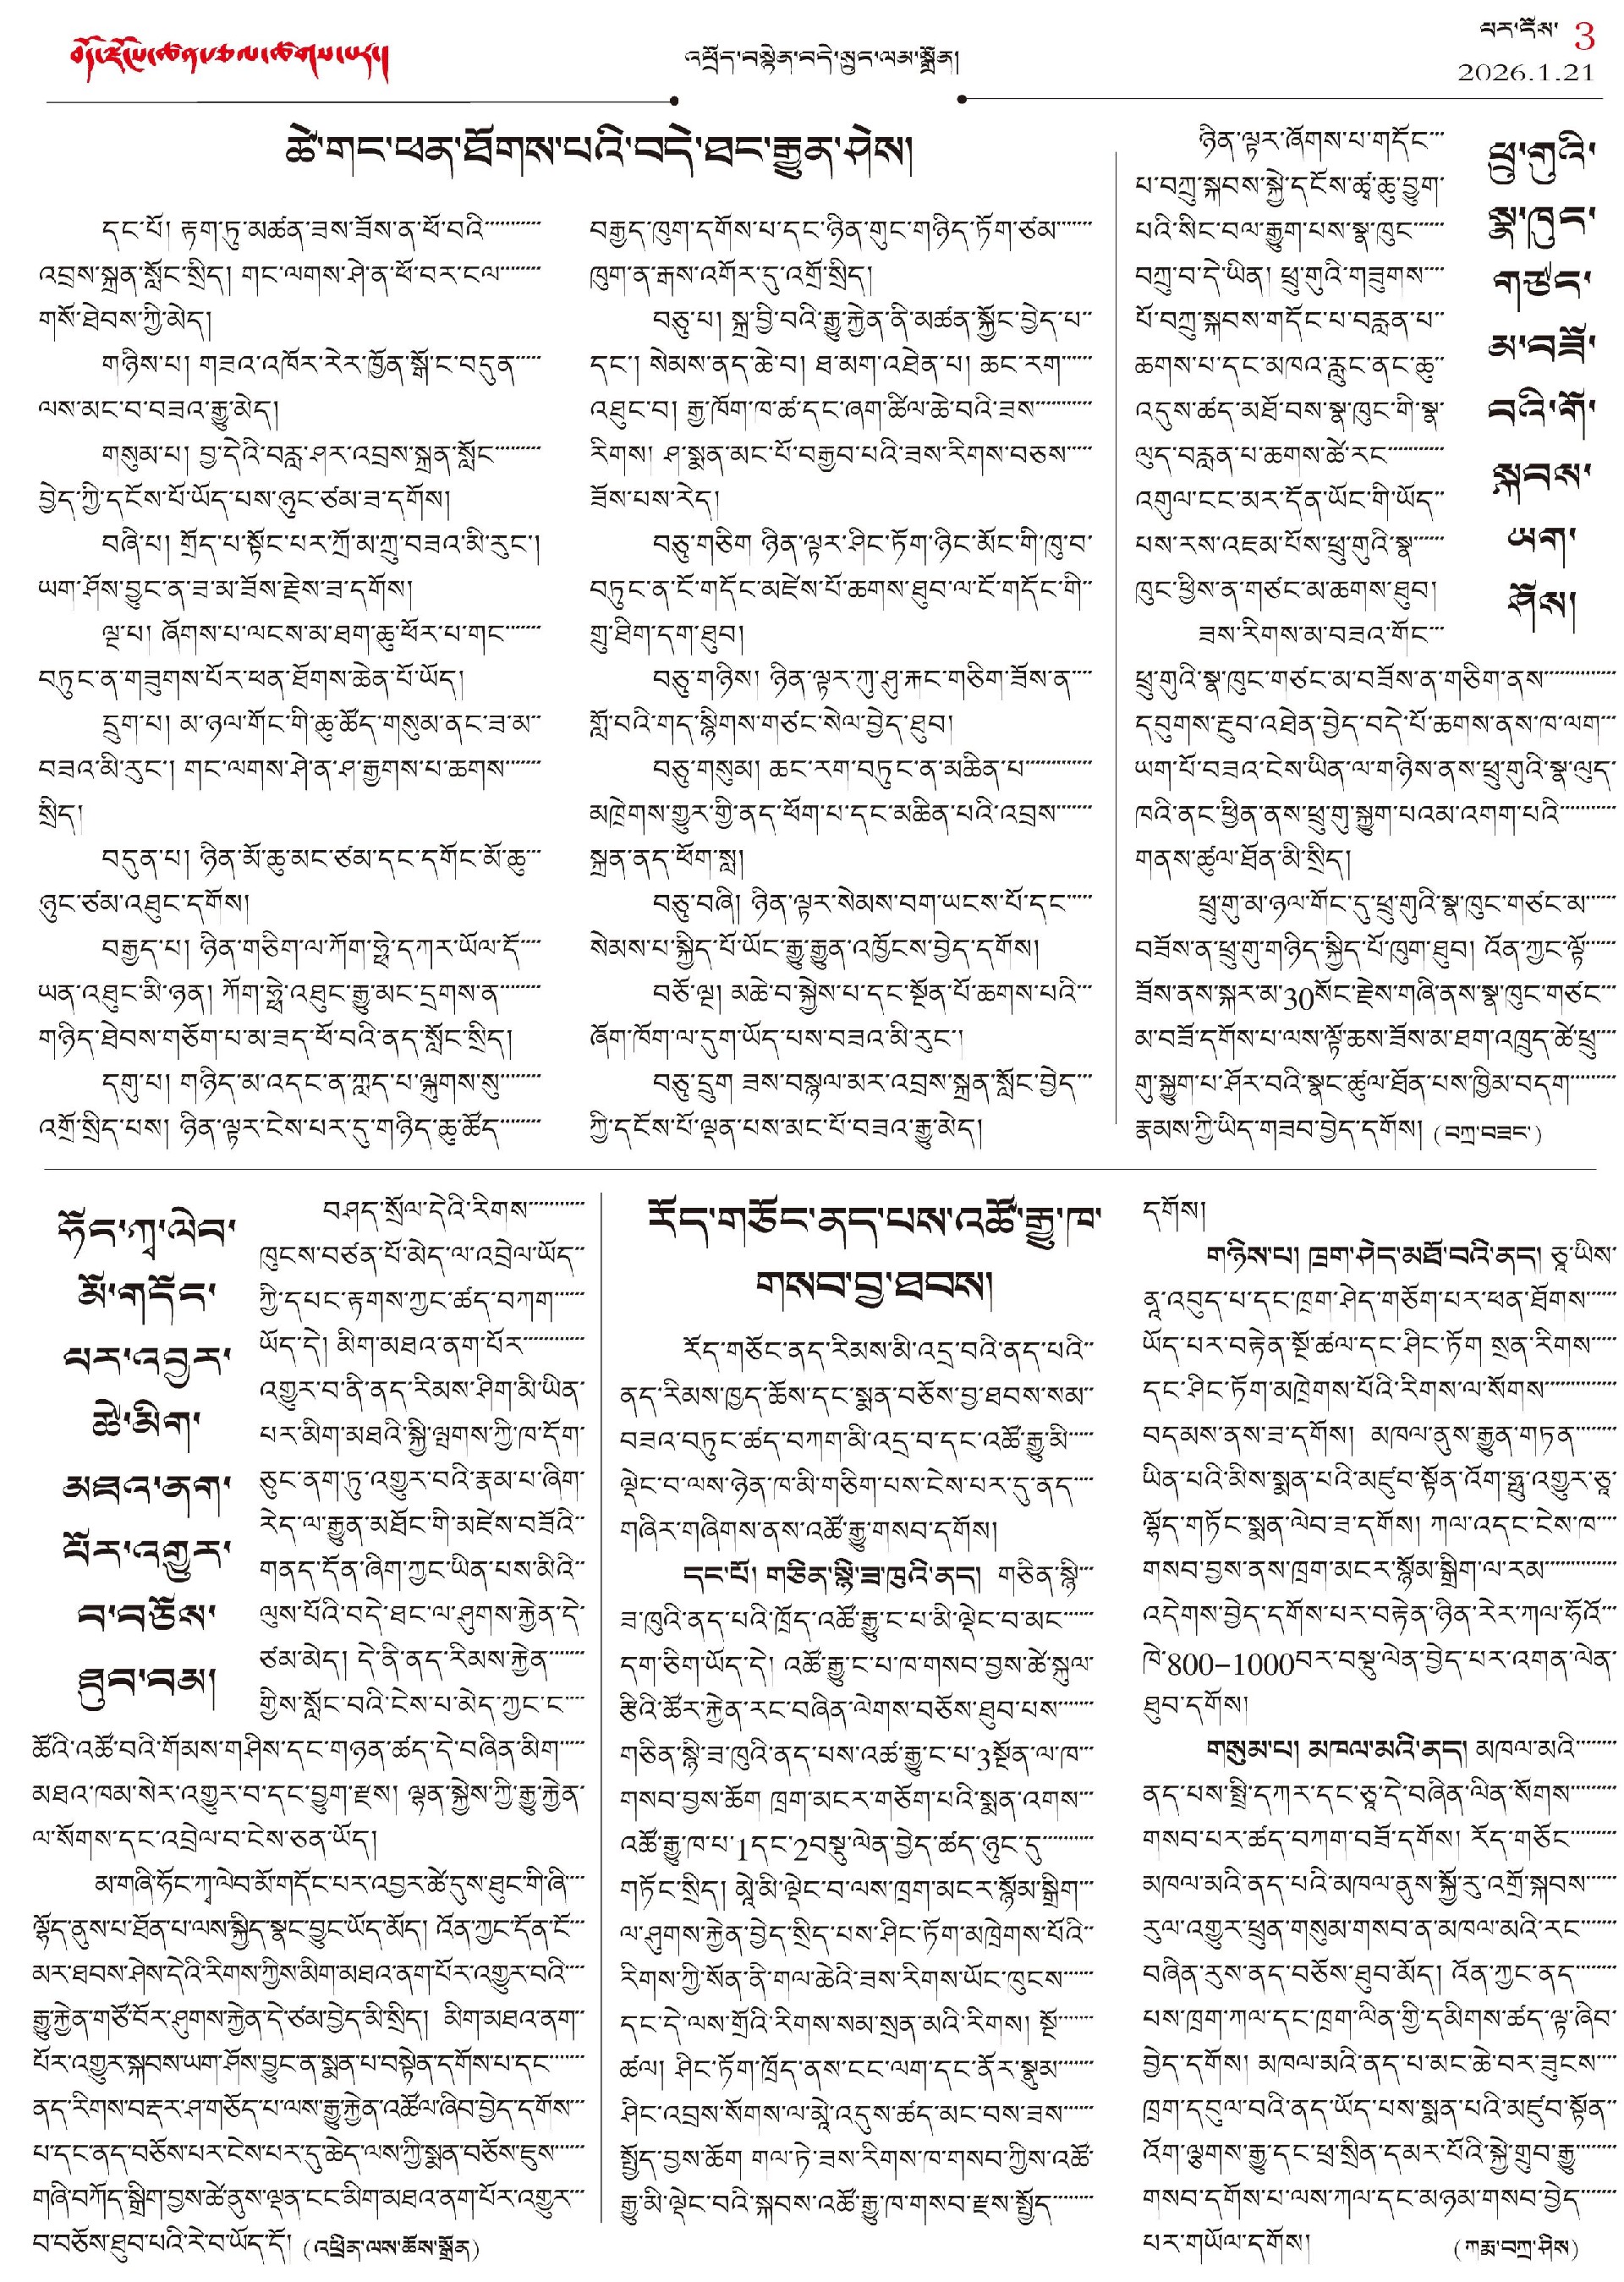 འཕྲོད་བསྟེན་བདེ་སྲུང་ལམ་སྒྲོན།
པར་ངོས་ 3
2026.1.21
ཚེ་གང་ཕན་ཐོགས་པའི་བདེ་ཐང་རྒྱུན་ཤེས།
དང་པོ། རྟག་ཏུ་མཚན་ཟས་ཟོས་ན་ཕོ་བའི་
འབྲས་སྐྲན་སློང་སྲིད། གང་ལགས་ཤེ་ན་ཕོ་བར་ངལ་
གསོ་ཐེབས་ཀྱི་མེད།
གཉིས་པ། གཟའ་འཁོར་རེར་ཁྱོན་སྒོ་ང་བདུན་
ལས་མང་བ་བཟའ་རྒྱུ་མེད།
གསུམ་པ། བྱ་དེའི་བརླ་ཤར་འབྲས་སྐྲན་སློང་
བྱེད་ཀྱི་དངོས་པོ་ཡོད་པས་ཉུང་ཙམ་ཟ་དགོས།
བཞི་པ། གྲོད་པ་སྟོང་པར་ཀྲོ་མ་ཀྲུ་བཟའ་མི་རུང་།
ཡག་ཤོས་བྱུང་ན་ཟ་མ་ཟོས་རྗེས་ཟ་དགོས།
ལྔ་པ། ཞོགས་པ་ལངས་མ་ཐག་ཆུ་ཕོར་པ་གང་
བཏུང་ན་གཟུགས་པོར་ཕན་ཐོགས་ཆེན་པོ་ཡོད།
དྲུག་པ། མ་ཉལ་གོང་གི་ཆུ་ཚོད་གསུམ་ནང་ཟ་མ་
བཟའ་མི་རུང་། གང་ལགས་ཤེ་ན་ཤ་རྒྱགས་པ་ཆགས་
སྲིད།
བདུན་པ། ཉིན་མོ་ཆུ་མང་ཙམ་དང་དགོང་མོ་ཆུ་
ཉུང་ཙམ་འཐུང་དགོས།
བརྒྱད་པ། ཉིན་གཅིག་ལ་ཀོག་ཧྥེ་དཀར་ཡོལ་དོ་
ཡན་འཐུང་མི་ཉན། ཀོག་ཧྥེ་འཐུང་རྒྱུ་མང་དྲགས་ན་
གཉིད་ཐེབས་གཅོག་པ་མ་ཟད་ཕོ་བའི་ནད་སློང་སྲིད།
དགུ་པ། གཉིད་མ་འདང་ན་ཀླད་པ་ལྐུགས་སུ་
འགྲོ་སྲིད་པས། ཉིན་ལྟར་ངེས་པར་དུ་གཉིད་ཆུ་ཚོད་
བརྒྱད་ཁུག་དགོས་པ་དང་ཉིན་གུང་གཉིད་ཏོག་ཙམ་
ཁུག་ན་རྒས་འགོར་དུ་འགྲོ་སྲིད།
བཅུ་པ། སྐྲ་བྱི་བའི་རྒྱུ་རྐྱེན་ནི་མཚན་སྐྱོང་བྱེད་པ་
དང་། སེམས་ནད་ཆེ་བ། ཐ་མག་འཐེན་པ། ཆང་རག་
འཐུང་བ། རྒྱ་ཁོག་ཁ་ཚ་དང་ཞག་ཚིལ་ཆེ་བའི་ཟས་
རིགས། ཤ་སྨན་མང་པོ་བརྒྱབ་པའི་ཟས་རིགས་བཅས་
ཟོས་པས་རེད།
བཅུ་གཅིག ཉིན་ལྟར་ཤིང་ཏོག་ཉིང་མོང་གི་ཁུ་བ་
བཏུང་ན་ངོ་གདོང་མཛེས་པོ་ཆགས་ཐུབ་ལ་ངོ་གདོང་གི་
གྲུ་ཐིག་དག་ཐུབ།
བཅུ་གཉིས། ཉིན་ལྟར་ཀུ་ཤུ་རྐང་གཅིག་ཟོས་ན་
གློ་བའི་གད་སྙིགས་གཙང་སེལ་བྱེད་ཐུབ།
བཅུ་གསུམ། ཆང་རག་བཏུང་ན་མཆིན་པ་
མཁྲེགས་གྱུར་གྱི་ནད་ཕོག་པ་དང་མཆིན་པའི་འབྲས་
སྐྲན་ནད་ཕོག་སླ།
བཅུ་བཞི། ཉིན་ལྟར་སེམས་བག་ཡངས་པོ་དང་
སེམས་པ་སྐྱིད་པོ་ཡོང་རྒྱུ་རྒྱུན་འཁྱོངས་བྱེད་དགོས།
བཅོ་ལྔ། མཆེ་བ་སྐྱེས་པ་དང་སྔོན་པོ་ཆགས་པའི་
ཞོག་ཁོག་ལ་དུག་ཡོད་པས་བཟའ་མི་རུང་།
བཅུ་དྲུག ཟས་བསྙལ་མར་འབྲས་སྐྲན་སློང་བྱེད་
ཀྱི་དངོས་པོ་ལྡན་པས་མང་པོ་བཟའ་རྒྱུ་མེད།
ཕྲུ་གུའི་
སྣ་ཁུང་
གཙང་
མ་བཟོ་
བའི་གོ་
སྐབས་
ཡག་
ཤོས།
ཉིན་ལྟར་ཞོགས་པ་གདོང་
པ་བཀྲུ་སྐབས་སྐྱེ་དངོས་ཚྭ་ཆུ་བྱུག་
པའི་སིང་བལ་རྒྱུག་པས་སྣ་ཁུང་
བཀྲུ་བ་དེ་ཡིན། ཕྲུ་གུའི་གཟུགས་
པོ་བཀྲུ་སྐབས་གདོང་པ་བརླན་པ་
ཆགས་པ་དང་མཁའ་རླུང་ནང་ཆུ་
འདུས་ཚད་མཐོ་བས་སྣ་ཁུང་གི་སྣ་
ལུད་བརླན་པ་ཆགས་ཚེ་རང་
འགུལ་ངང་མར་དོན་ཡོང་གི་ཡོད་
པས་རས་འཇམ་པོས་ཕྲུ་གུའི་སྣ་
ཁུང་ཕྱིས་ན་གཙང་མ་ཆགས་ཐུབ།
ཟས་རིགས་མ་བཟའ་གོང་
ཕྲུ་གུའི་སྣ་ཁུང་གཙང་མ་བཟོས་ན་གཅིག་ནས་
དབུགས་རྔུབ་འཐེན་བྱེད་བདེ་པོ་ཆགས་ནས་ཁ་ལག་
ཡག་པོ་བཟའ་ངེས་ཡིན་ལ་གཉིས་ནས་ཕྲུ་གུའི་སྣ་ལུད་
ཁའི་ནང་ཕྱིན་ནས་ཕྲུ་གུ་སྐྱུག་པའམ་འགག་པའི་
གནས་ཚུལ་ཐོན་མི་སྲིད།
ཕྲུ་གུ་མ་ཉལ་གོང་དུ་ཕྲུ་གུའི་སྣ་ཁུང་གཙང་མ་
བཟོས་ན་ཕྲུ་གུ་གཉིད་སྐྱིད་པོ་ཁུག་ཐུབ། འོན་ཀྱང་ལྟོ་
ཟོས་ནས་སྐར་མ་30སོང་རྗེས་གཞི་ནས་སྣ་ཁུང་གཙང་
མ་བཟོ་དགོས་པ་ལས་ལྟོ་ཆས་ཟོས་མ་ཐག་འཁྲུད་ཚེ་ཕྲུ་
གུ་སྐྱུག་པ་ཤོར་བའི་སྣང་ཚུལ་ཐོན་པས་ཁྱིམ་བདག་
རྣམས་ཀྱི་ཡིད་གཟབ་བྱེད་དགོས། (བཀྲ་བཟང་)
ཧོད་ཀྭ་ལེབ་
མོ་གདོང་
པར་འབྱར་
ཚེ་མིག་
མཐའ་ནག་
པོར་འགྱུར་
བ་བཅོས་
ཐུབ་བམ།
བཤད་སྲོལ་དེའི་རིགས་
ཁུངས་བཙན་པོ་མེད་ལ་འབྲེལ་ཡོད་
ཀྱི་དཔང་རྟགས་ཀྱང་ཚད་བཀག་
ཡོད་དེ། མིག་མཐའ་ནག་པོར་
འགྱུར་བ་ནི་ནད་རིམས་ཤིག་མི་ཡིན་
པར་མིག་མཐའི་སྐྱི་ལྤགས་ཀྱི་ཁ་དོག་
ཅུང་ནག་ཏུ་འགྱུར་བའི་རྣམ་པ་ཞིག་
རེད་ལ་རྒྱུན་མཐོང་གི་མཛེས་བཟོའི་
གནད་དོན་ཞིག་ཀྱང་ཡིན་པས་མིའི་
ལུས་པོའི་བདེ་ཐང་ལ་ཤུགས་རྐྱེན་དེ་
ཙམ་མེད། དེ་ནི་ནད་རིམས་རྐྱེན་
གྱིས་སློང་བའི་ངེས་པ་མེད་ཀྱང་ང་
ཚོའི་འཚོ་བའི་གོམས་གཤིས་དང་གཉན་ཚད་དེ་བཞིན་མིག་
མཐའ་ཁམ་སེར་འགྱུར་བ་དང་བྱུག་རྫས། ལྷན་སྐྱེས་ཀྱི་རྒྱུ་རྐྱེན་
ལ་སོགས་དང་འབྲེལ་བ་ངེས་ཅན་ཡོད།
མ་གཞི་ཧོང་ཀྭ་ལེབ་མོ་གདོང་པར་འབྱར་ཚེ་དུས་ཐུང་གི་ཞི་
ལྷོད་ནུས་པ་ཐོན་པ་ལས་སྐྱིད་སྣང་བྱུང་ཡོད་མོད། འོན་ཀྱང་དོན་ངོ་
མར་ཐབས་ཤེས་དེའི་རིགས་ཀྱིས་མིག་མཐའ་ནག་པོར་འགྱུར་བའི་
རྒྱུ་རྐྱེན་གཙོ་བོར་ཤུགས་རྐྱེན་དེ་ཙམ་བྱེད་མི་སྲིད། མིག་མཐའ་ནག་
པོར་འགྱུར་སྐབས་ཡག་ཤོས་བྱུང་ན་སྨན་པ་བསྟེན་དགོས་པ་དང་
ནད་རིགས་བརྡར་ཤ་གཅོད་པ་ལས་རྒྱུ་རྐྱེན་འཚོལ་ཞིབ་བྱེད་དགོས་
པ་དང་ནད་བཅོས་པར་ངེས་པར་དུ་ཆེད་ལས་ཀྱི་སྨན་བཅོས་ཇུས་
གཞི་བཀོད་སྒྲིག་བྱས་ཚེ་ནུས་ལྡན་ངང་མིག་མཐའ་ནག་པོར་འགྱུར་
བ་བཅོས་ཐུབ་པའི་རེ་བ་ཡོད་དོ། (འཕྲིན་ལས་ཆོས་སྒྲོན)
རོད་གཅོང་ནད་པས་འཚོ་རྒྱུ་ཁ་
གསབ་བྱ་ཐབས།
རོད་གཅོང་ནད་རིམས་མི་འདྲ་བའི་ནད་པའི་
ནད་རིམས་ཁྱད་ཆོས་དང་སྨན་བཅོས་བྱ་ཐབས་སམ་
བཟའ་བཏུང་ཚད་བཀག་མི་འདྲ་བ་དང་འཚོ་རྒྱུ་མི་
ལྡེང་བ་ལས་ཉེན་ཁ་མི་གཅིག་པས་ངེས་པར་དུ་ནད་
གཞིར་གཞིགས་ནས་འཚོ་རྒྱུ་གསབ་དགོས།
དང་པོ། གཅིན་སྙི་ཟ་ཁུའི་ནད། གཅིན་སྙི་
ཟ་ཁུའི་ནད་པའི་ཁྲོད་འཚོ་རྒྱུ་ང་པ་མི་ལྡེང་བ་མང་
དག་ཅིག་ཡོད་དེ། འཚོ་རྒྱུ་ང་པ་ཁ་གསབ་བྱས་ཚེ་སྐུལ་
རྩིའི་ཚོར་རྐྱེན་རང་བཞིན་ལེགས་བཅོས་ཐུབ་པས་
གཅིན་སྙི་ཟ་ཁུའི་ནད་པས་འཚ་རྒྱུ་ང་པ་3སྔོན་ལ་ཁ་
གསབ་བྱས་ཆོག ཁྲག་མངར་གཅོག་པའི་སྨན་འགས་
འཚོ་རྒྱུ་ཁ་པ་1དང་2བསྡུ་ལེན་བྱེད་ཚད་ཉུང་དུ་
གཏོང་སྲིད། མྱེ་མི་ལྡེང་བ་ལས་ཁྲག་མངར་སྙོམ་སྒྲིག་
ལ་ཤུགས་རྐྱེན་བྱེད་སྲིད་པས་ཤིང་ཏོག་མཁྲེགས་པོའི་
རིགས་ཀྱི་སོན་ནི་གལ་ཆེའི་ཟས་རིགས་ཡོང་ཁུངས་
དང་དེ་ལས་གྲོའི་རིགས་སམ་སྲན་མའི་རིགས། སྔོ་
ཚལ། ཤིང་ཏོག་ཁྲོད་ནས་ངང་ལག་དང་ནོར་སྣུམ་
ཤིང་འབྲས་སོགས་ལ་མྱེ་འདུས་ཚད་མང་བས་ཟས་
སྤྱོད་བྱས་ཆོག གལ་ཏེ་ཟས་རིགས་ཁ་གསབ་ཀྱིས་འཚོ་
རྒྱུ་མི་ལྡེང་བའི་སྐབས་འཚོ་རྒྱུ་ཁ་གསབ་རྫས་སྤྱོད་
དགོས།
གཉིས་པ། ཁྲག་ཤེད་མཐོ་བའི་ནད། ཅཱ་ཡིས་
ནཱ་འབུད་པ་དང་ཁྲག་ཤེད་གཅོག་པར་ཕན་ཐོགས་
ཡོད་པར་བརྟེན་སྔོ་ཚལ་དང་ཤིང་ཏོག སྲན་རིགས་
དང་ཤིང་ཏོག་མཁྲེགས་པོའི་རིགས་ལ་སོགས་
བདམས་ནས་ཟ་དགོས། མཁལ་ནུས་རྒྱུན་གཏན་
ཡིན་པའི་མིས་སྨན་པའི་མཛུབ་སྟོན་འོག་ཧྲུ་འགྱུར་ཅཱ་
ལྷོད་གཏོང་སྨན་ལེབ་ཟ་དགོས། ཀལ་འདང་ངེས་ཁ་
གསབ་བྱས་ནས་ཁྲག་མངར་སྙོམ་སྒྲིག་ལ་རམ་
འདེགས་བྱེད་དགོས་པར་བརྟེན་ཉིན་རེར་ཀལ་ཧོའོ་
ཁེ་800–1000བར་བསྡུ་ལེན་བྱེད་པར་འགན་ལེན་
ཐུབ་དགོས།
གསུམ་པ། མཁལ་མའི་ནད། མཁལ་མའི་
ནད་པས་སྤྲི་དཀར་དང་ཅཱ་དེ་བཞིན་ལིན་སོགས་
གསབ་པར་ཚད་བཀག་བཟོ་དགོས། རོད་གཅོང་
མཁལ་མའི་ནད་པའི་མཁལ་ནུས་སྐྱོ་རུ་འགྲོ་སྐབས་
རུལ་འགྱུར་ཕྲུན་གསུམ་གསབ་ན་མཁལ་མའི་རང་
བཞིན་རུས་ནད་བཅོས་ཐུབ་མོད། འོན་ཀྱང་ནད་
པས་ཁྲག་ཀལ་དང་ཁྲག་ལིན་གྱི་དམིགས་ཚད་ལྟ་ཞིབ་
བྱེད་དགོས། མཁལ་མའི་ནད་པ་མང་ཆེ་བར་ཟུངས་
ཁྲག་དབུལ་བའི་ནད་ཡོད་པས་སྨན་པའི་མཛུབ་སྟོན་
འོག་ལྕགས་རྒྱུ་དང་ཕྲ་སྲིན་དམར་པོའི་སྐྱེ་གྲུབ་རྒྱུ་
གསབ་དགོས་པ་ལས་ཀལ་དང་མཉམ་གསབ་བྱེད་
པར་གཡོལ་དགོས།
(ཀརྨ་བཀྲ་ཤིས)